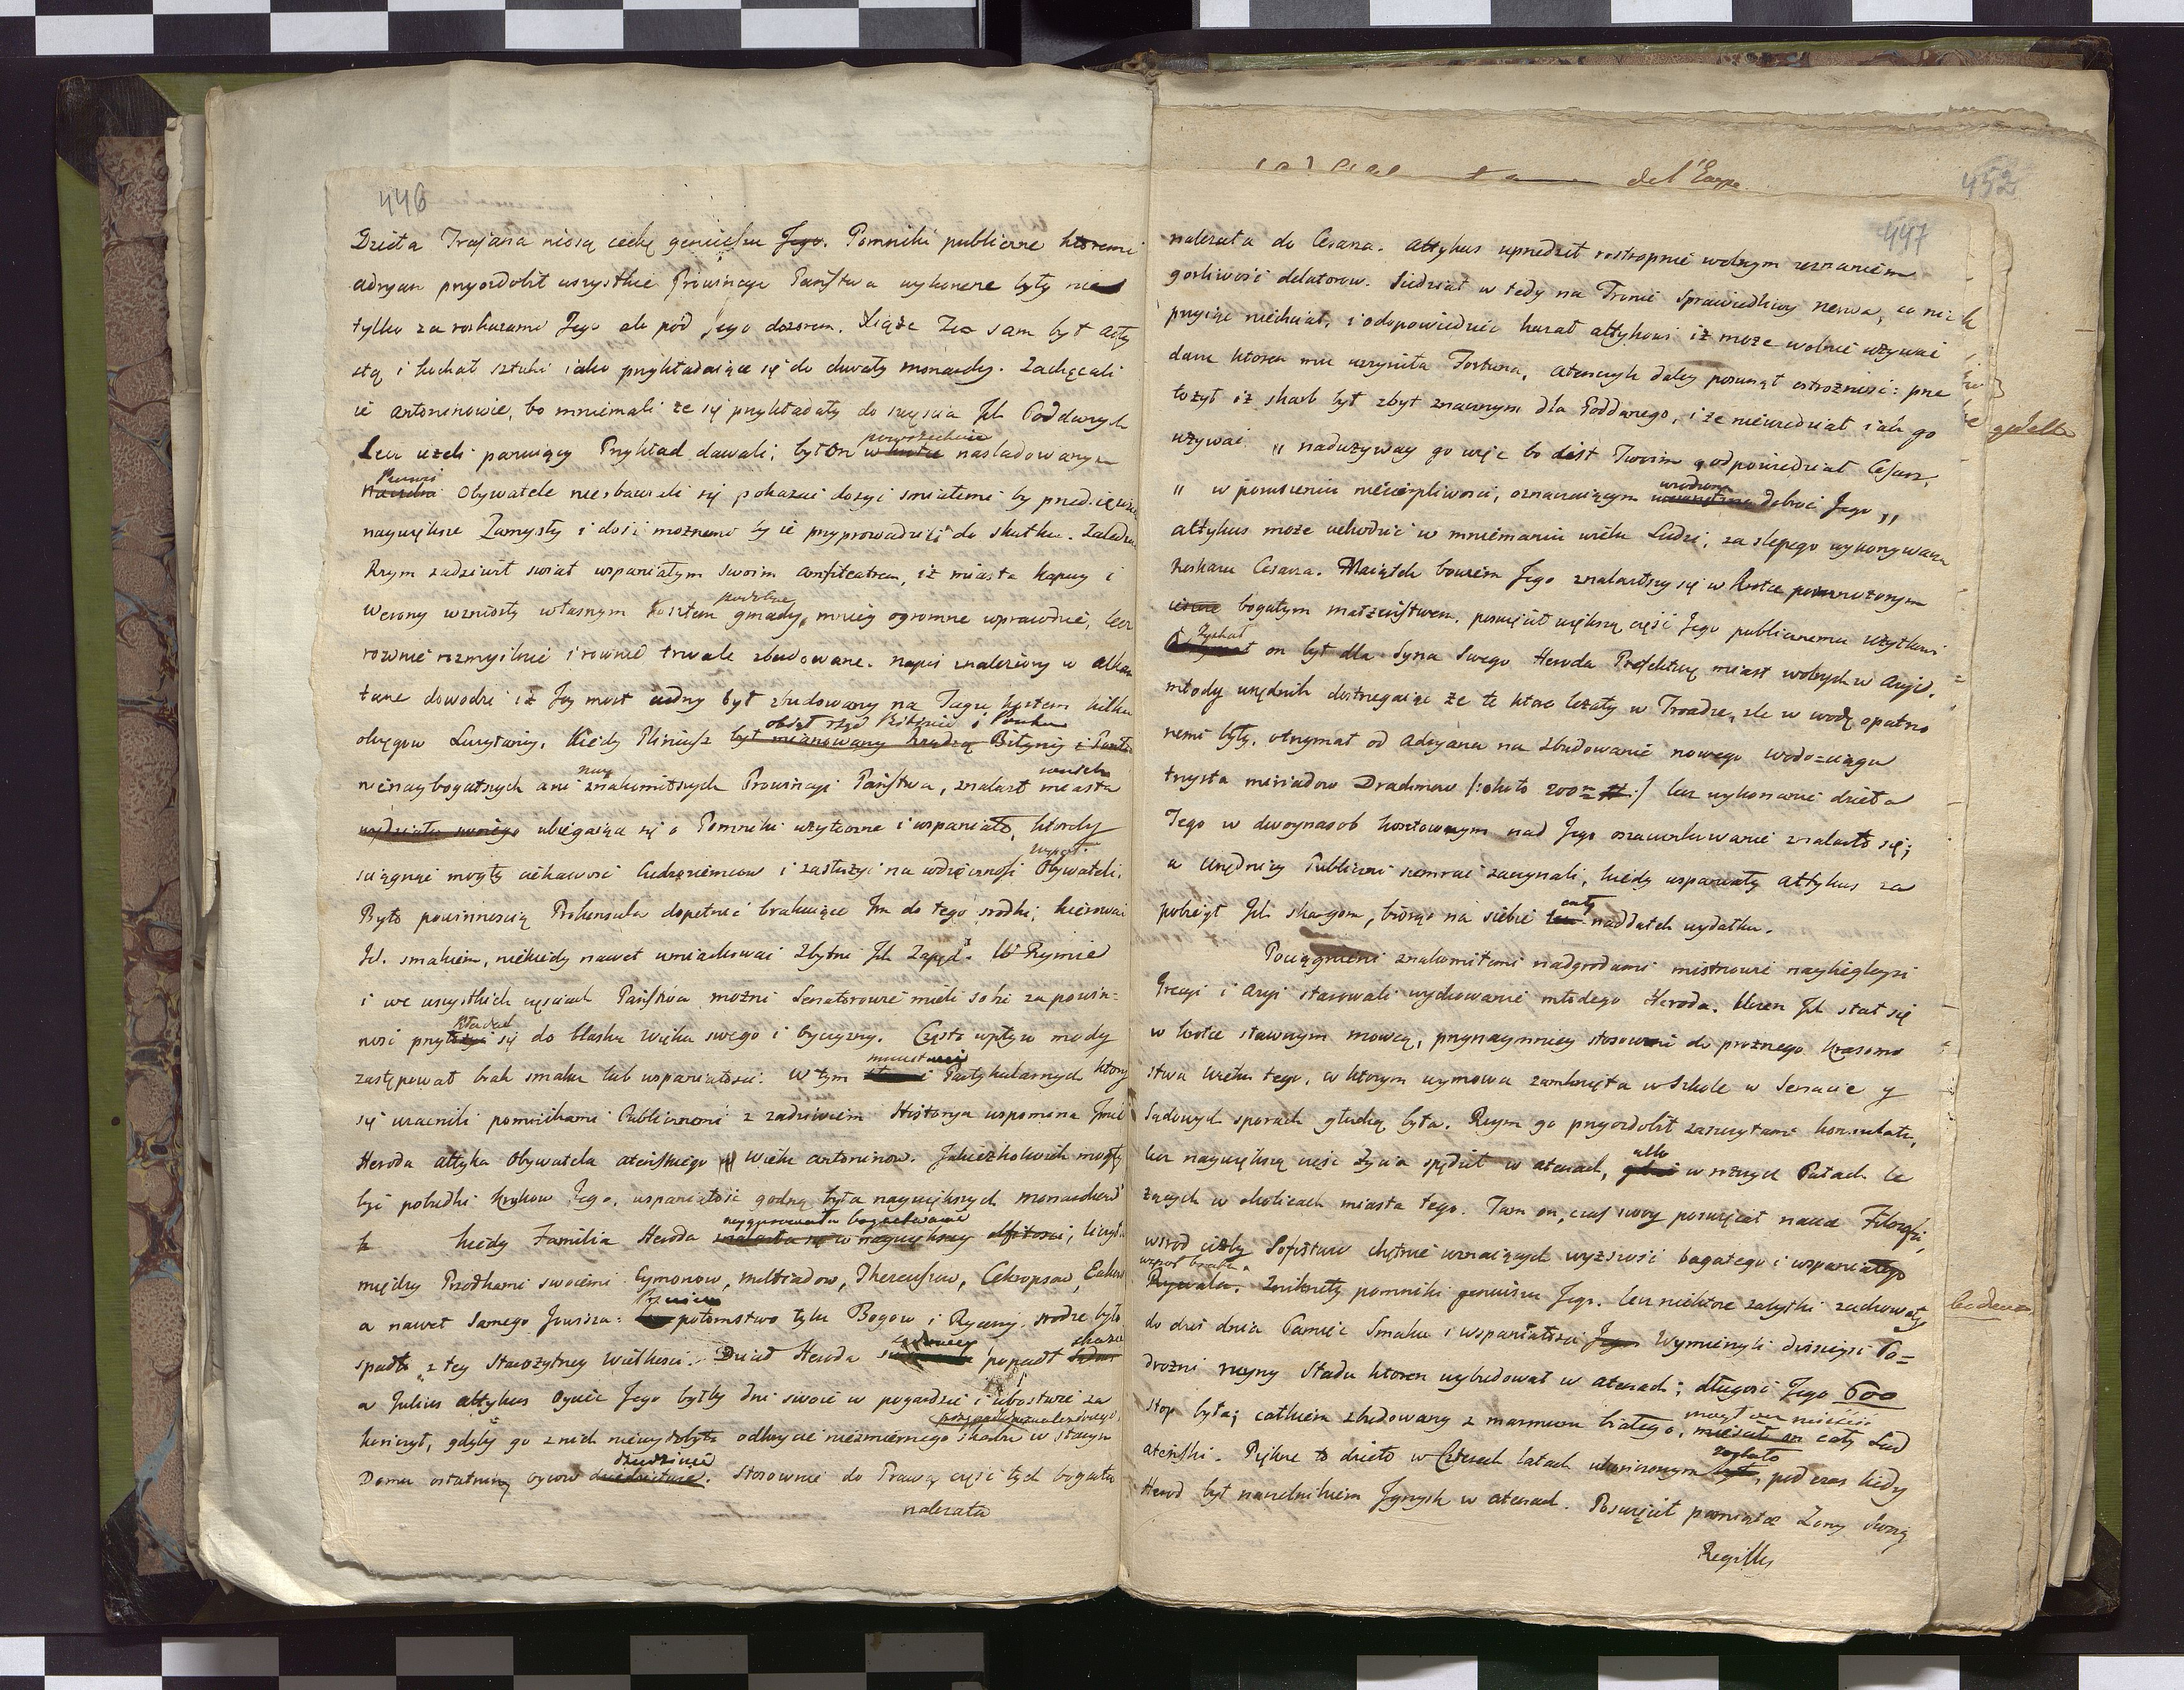 446
Dzieła Trajana niosą cechę geniuszu Jego. Pomniki publiczne ktoremi
adryan przyozdobił wszystkie Prowincye Państwa wykonane były nie
tylko za rozkazami Jego ale pod Jego dozorem. Xiąże Ten sam był arty
stą i kochał sztuki iako przykładaiące się do chwały monarchy. Zachęcali
ie antoninowie, bo mniemali że się przykładały do szczęścia Ich Poddanych
powszechnie
Lecz ieżeli panuiący Przykład dawali; był on wkrotce nasladowanym
Pierwsi
Obywatele nieobawiali się pokazać dosyć smiałemi by przedsięwziąć
naywiększe Zamysły i dość możnemi by ie przyprowadzili do skutku. Zaledwie
Rzym zadziwił swiat wspaniałym swoim amfiteatrem, iż miasta Kapuy i
podobne
Werony wzniosły własnym kosztem gmachy, mniey ogromne wprawdzie, lecz
rownie rozmyslnie i rownie trwale zbudowane. napis znaleziony w alkan
tarze dowodzi iż Jey most cudny był zbudowany na Tagu kosztem kilku
objął rząd Bitynii i Pontu
okręgow Luzytanij. Kiedy Pliniusz był mianowany Rządcą Bitynij i Pontu
nay
nienaybogatszych ani znakomitszych Prowincyi Państwa, znalazł miasta
wydziału swoiego ubiegaiące się o Pomniki użyteczne i wspaniałe, ktoreby
sciągnąć mogły ciekawość Cudzoziemcow i zasłużyć na wdzięczność Obywateli.
Było powinnością Prokonsula dopełnić brakuiące Im do tego srodki; kierować
Ich smakiem, niekiedy nawet umiarkować zbytni Ich Zapęd. W Rzymie
i we wszystkich częściach Państwa możni Senatorowie mieli sobie za powin=
kładać
ność przy się do blasku Wieku swego i Oyczyzny. Często wpływ mody
zastępował brak smaku lub wspaniałości. W tym Partykularnych ktorzy
się uzacnili pomnikami Publicznemi z zadziwieniem Historya wspomina Imie
Heroda attyka Obywatela ateńskiego Wieku antoninow. Jakiezkolwiek mogły
być pobudki Krokow Jego, wspaniałość godną była naywiększych monarchow
kiedy Familia Heroda znalazła się w naywiększey obfitości, liczyła
między Przodkami swoiemi Cymonow, miltiadow, Thezeuszow, Cekropsow, Eakow
a nawet Samego Jowisza: potomstwo tylu Bogow i Rycerzy, srodze było
spadło z tey Starożytney Wielkości. Dziad Heroda popadł
a Julius attykus Oyciec Jego byłby dni swoie w pogardzie i ubostwie za
kończył, gdyby go z nich niewydobyło odkrycie niezmiernego skarbu w starym
Domu ostatnim oycow dziedzictwie. Stosownie do Prawa część tych bogactw
nalezała

del'Europe
452
447
nalezała do Cesarza. attykus uprzedził rostropnie wolnym zeznaniem
gorliwość delatorow. Siedział w tedy na Tronie Sprawiedliwy nerwa, co nic
przyiąć niechciał, i odopowiedzieć kazał attykowi iż może wolnie używać
daru ktoren mu uczyniła Fortuna, atenczyk daley posunął ostrożność: prze
łożył iż skarb był zbyt znacznym dla Poddanego, i że niewiedział iak go
używać „ nadużyway go więc bo iest Twoim „ odpowiedział Cesarz,
wrodzoną
„ w poruszeniu niecierpliwości, oznaczaiącym dobroć Jego „
attykus może uchodzić w mniemaniu wielu Ludzi, za slepego wykonywacza
Rozkazu Cesarza. Maiątek bowiem Jego znalazłszy się w krotce pomnożonym
bogatym małzeństwem, poswięcił większą część Jego publicznemu użytkowi
Zyskał
on był dla Syna Swego Heroda Prefekturę miast wolnych w azyi.
młody urzędnik dostrzegaiąc że te ktore leżały w Troadzie, zle w wodę opatrzo
nemi były, otrzymał od adryana na zbudowanie nowego wodociągu
trzysta miriadow Drachmow /: około 200 :/ lecz wykonanie dzieła
Tego w dwoynasob kosztownym nad Jego oszacowanie znalazło się;
a Urzędnicy Publiczni szemrać zaczynali, kiedy wspaniały attykus za
cały
pobiegł Ich skargom, biorąc na siebie naddatek wydatku.
Pociągnieni znakomitemi nadgrodami mistrzowie naybiegleysi
Grecyi i azyi starowali wychowanie młodego Heroda. Uczen Ich stał się
w krotce sławnym mowcą, przynaymniey stosownie do prożnego Krasomo
stwa wieku tego, w ktorym wymowa zamknięta w Szkole w Senacie y
Sądowych sporach głuchą była. Rzym go przyozdobił zaszczytami konsulatu,
albo
lecz naywiększą część życia spędził w atenach, w roznych Pałacach le
żących w okolicach miasta tego. Tam on, czas swoy poswięcał nauce Filozofii,
wsrod ciżby Sofistow chętnie uznaiących wyższość bogatego i wspaniałego
Rywala. Zniknęły pomniki geniuszu Jego. lecz niektore zabytki zachowały
do dziś dnia Pamięć Smaku i wspaniałości Jego Wymierzyli dzisieysi Po=
drożni ruyny Stadu ktoren wybudował w atenach; długość Jego 600
mogł on mieścić
Stop była; całkiem zbudowany z marmuru białego, mieścił on cały Lud
zostało
ateński. Piękne to dzieło w Czterech latach ukończonym było, pod czas kiedy
Herod był naczelnikiem Igrzysk w atenach. Poswięcił pamiątce Zony Swoiey
Regilly